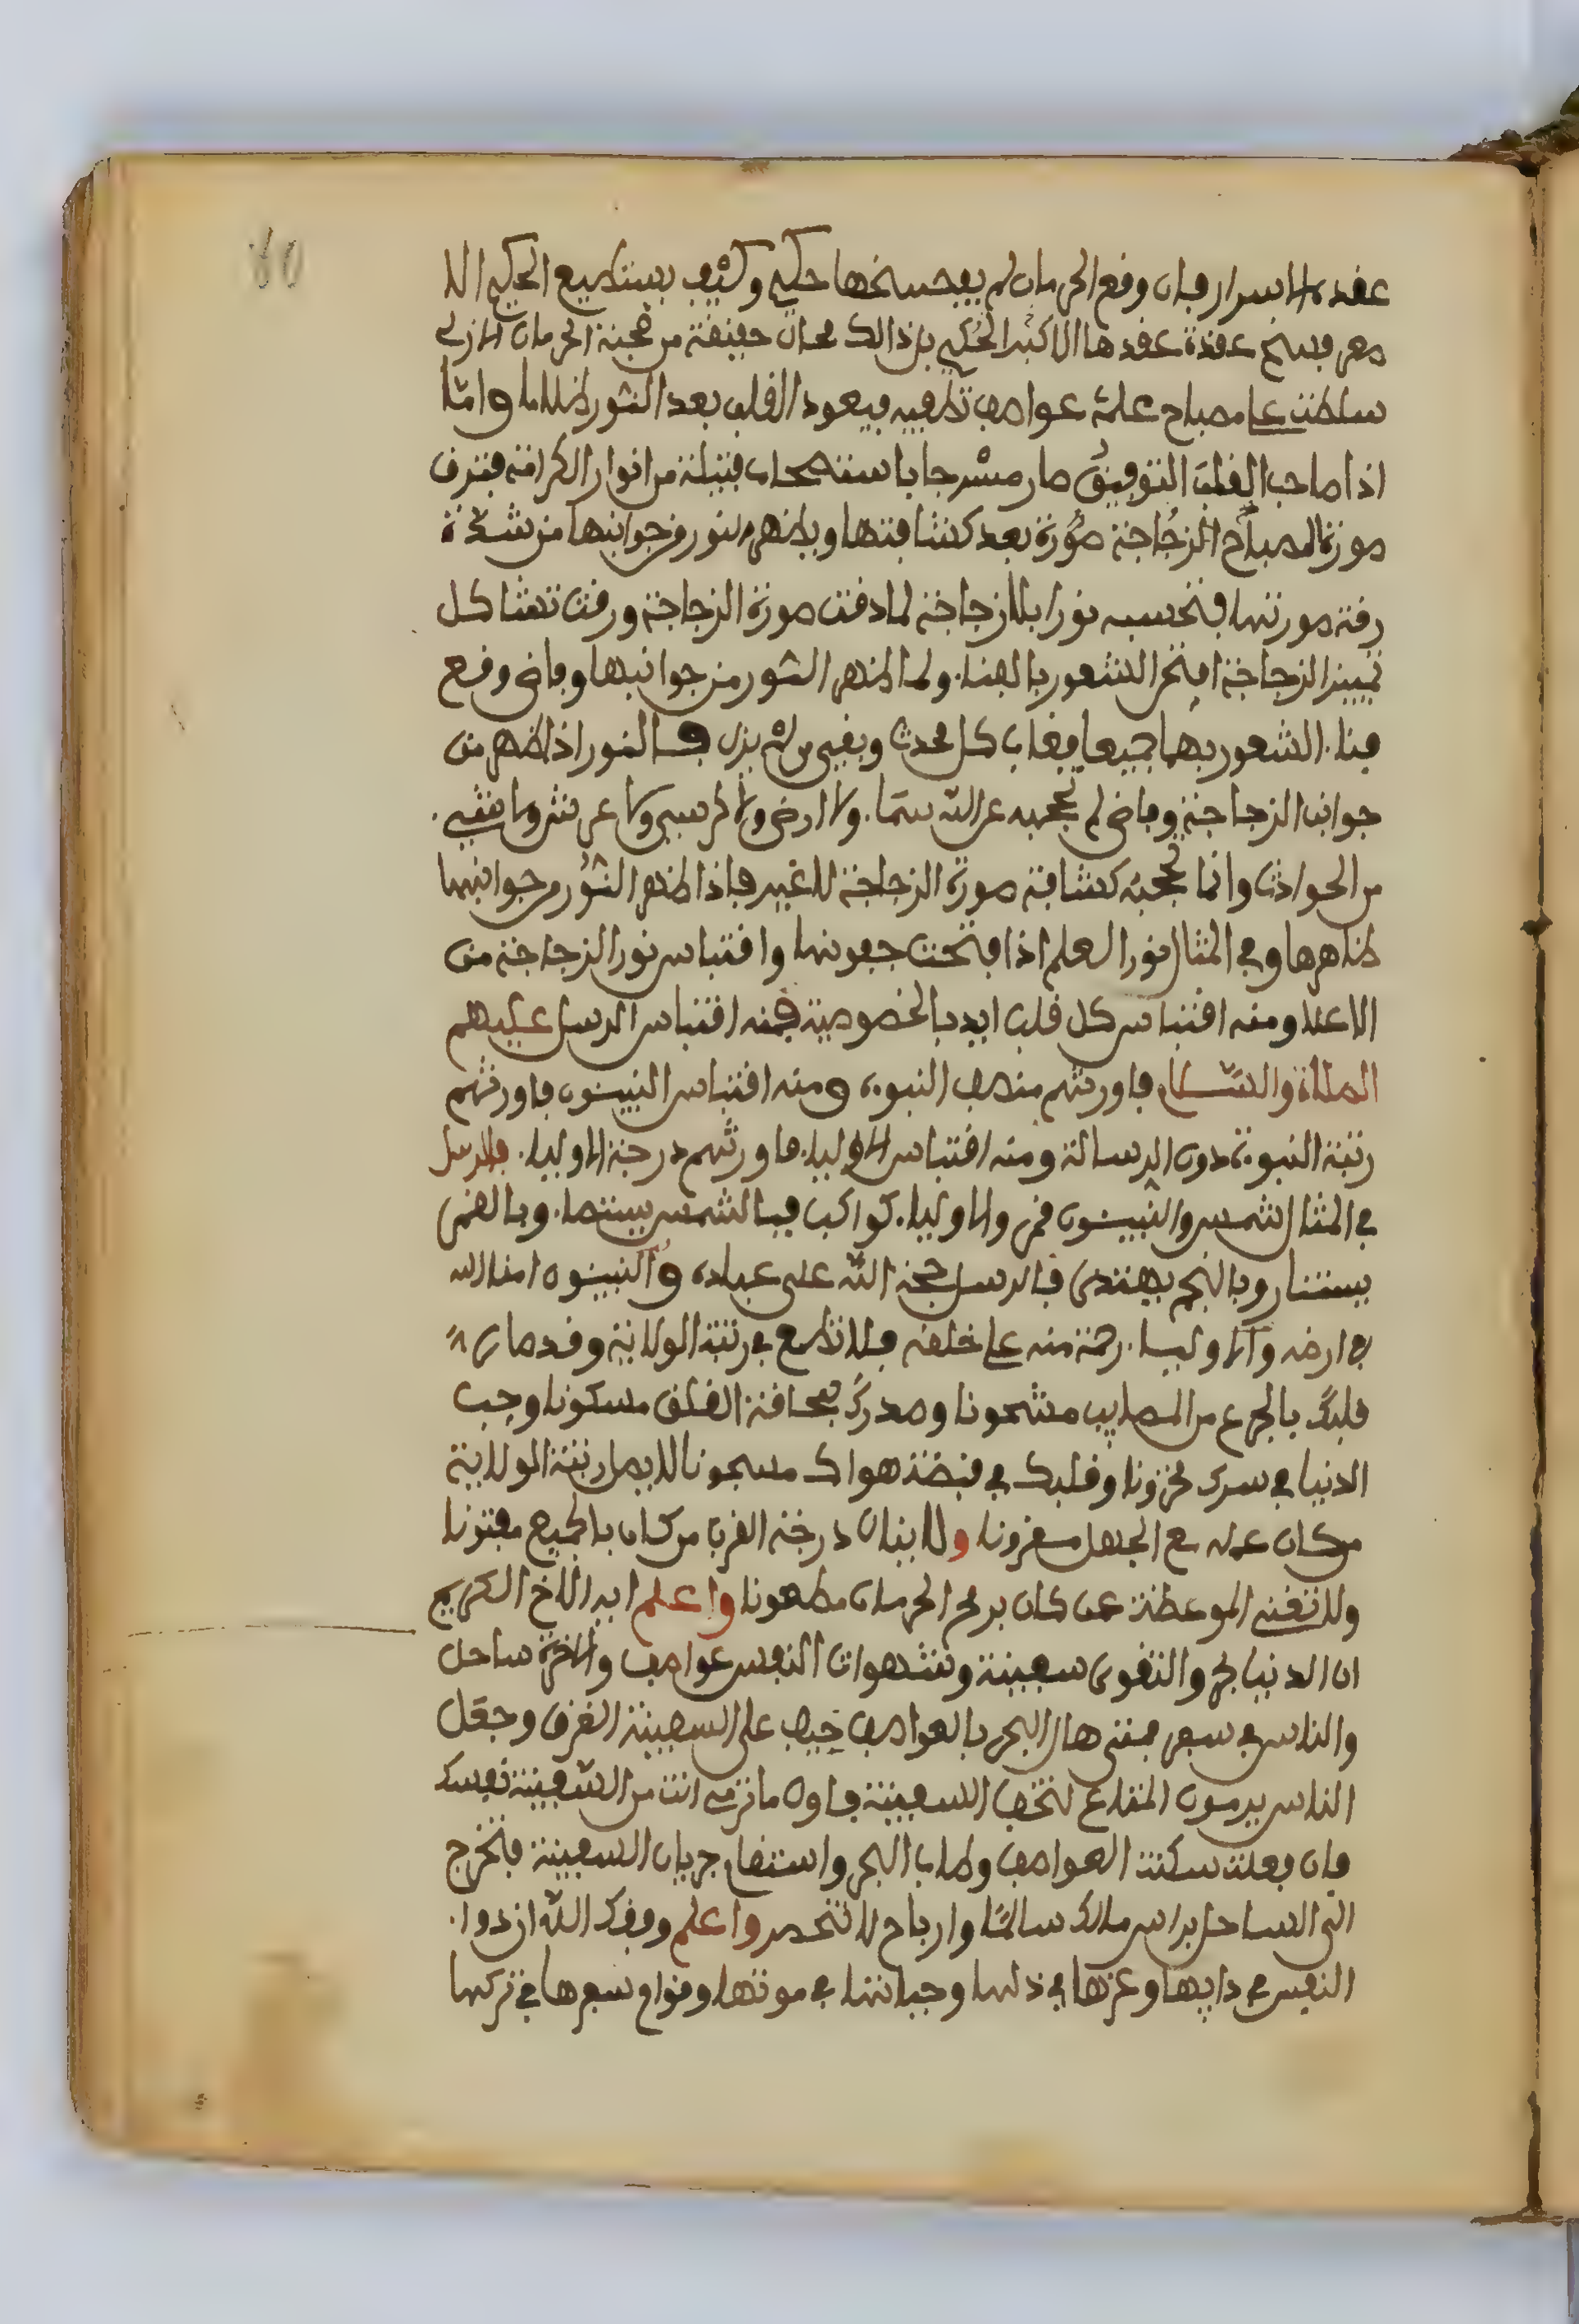 عقدة الاسرار فان وقع الحرمان لم يفسخها حكيم وكيف يستطيع الحكيم الا
صغر فسخ عقدة عقدها الاكبر الحكيم بل ذالك محال حقيقة من محبة الحرمان الازلي
سلطت على مصباح علمه عواصف تطفيه فيعود القلب بعد النور ظلاما واما
اذا صاحب القلب التوفيق صار مسرجا باستصحاب فتيلة من انوار الكرامة فترق
صورة المصباح الزجاجة صورة بعد كثافتها ويظهر النور من جوانبها من شدة
رقة صورتها فتحسبه نورا بلا زجاجة لما دقت صورة الزجاجة ورقت تشاكل
تمييز الزجاجة افتخر الشعور بالفنا ولما ظهر النور من جوانبها وفاض وقع
فنا الشعور بهما جميعا فغاب كل محدث وبقي من لم يزل فالنور اذا ظهر من
جوانب الزجاجة وفاض لم يحجبه عن الله سما ولا ارض ولا كرسي ولا عرش ولا شيء
من الحوادث وانما يحجبه كثافة صورة الزجاجة للغير فاذا ظهر النور من جوانبها
ظاهرها وفي المثال نور العلم اذا فتحت جفونها واقتباس نور الزجاجة من
الاعلا ومنه اقتباس كل قلب ايد بالخصوصية فمنه اقتباس الرسل عليهم
الصلاة والسلام فاورثهم منصب النبوة ومنه اقتباس النبيئون فاورثهم
رتبة النبوة دون الرسالة ومنه اقتباس الاوليا فاورثهم درجة الاوليا فالرسل
في المثال شمس والنبيئون قمر والاوليا كواكب فبالشمس يستضا وبالقمر
يستنار وبالنجم يهتدى فالرسل حجة الله على عباده والنبيئون امنا الله
في ارضه والاوليا رحمة منه على خلقه فلا تطمع في رتبة الولاية وقد صار
قلبك بالجزع من المصايب مشحونا وصدرك بمخافة الخلق مسكونا وحب
الدنيا في سرك مخزونا وقلبك في قبضة هواك مسجونا لا يصل رتبة الولاية
من كان عمله مع الجهل مقرونا ولا ينال درجة القرب من كان بالجميع مفتونا
ولا تغني الموعظة عن من كان برمح الحرمان مطعونا واعلم ايه الاخ الكريم
ان الدنيا بحر والتقوى سفينة وشهوات النفس عواصف والاخرة ساحل
والناس في سفر فمتى هال البحر بالعواصف خيف على السفينة الغرق وجعل
الناس يرمون المتاع لتخف السفينة فاول ما ترمي انت من السفينة نفسك
فان فعلت سكنت العواصف وطاب البحر واستقام جريان السفينة فتخرج
الى الساحل براس مالك سالما وارباح لا تنحصر واعلم وفقك الله ان دوا
النفس في دايها وعزها في ذلها وحياتها في موتها وقوام سفرها في تركها